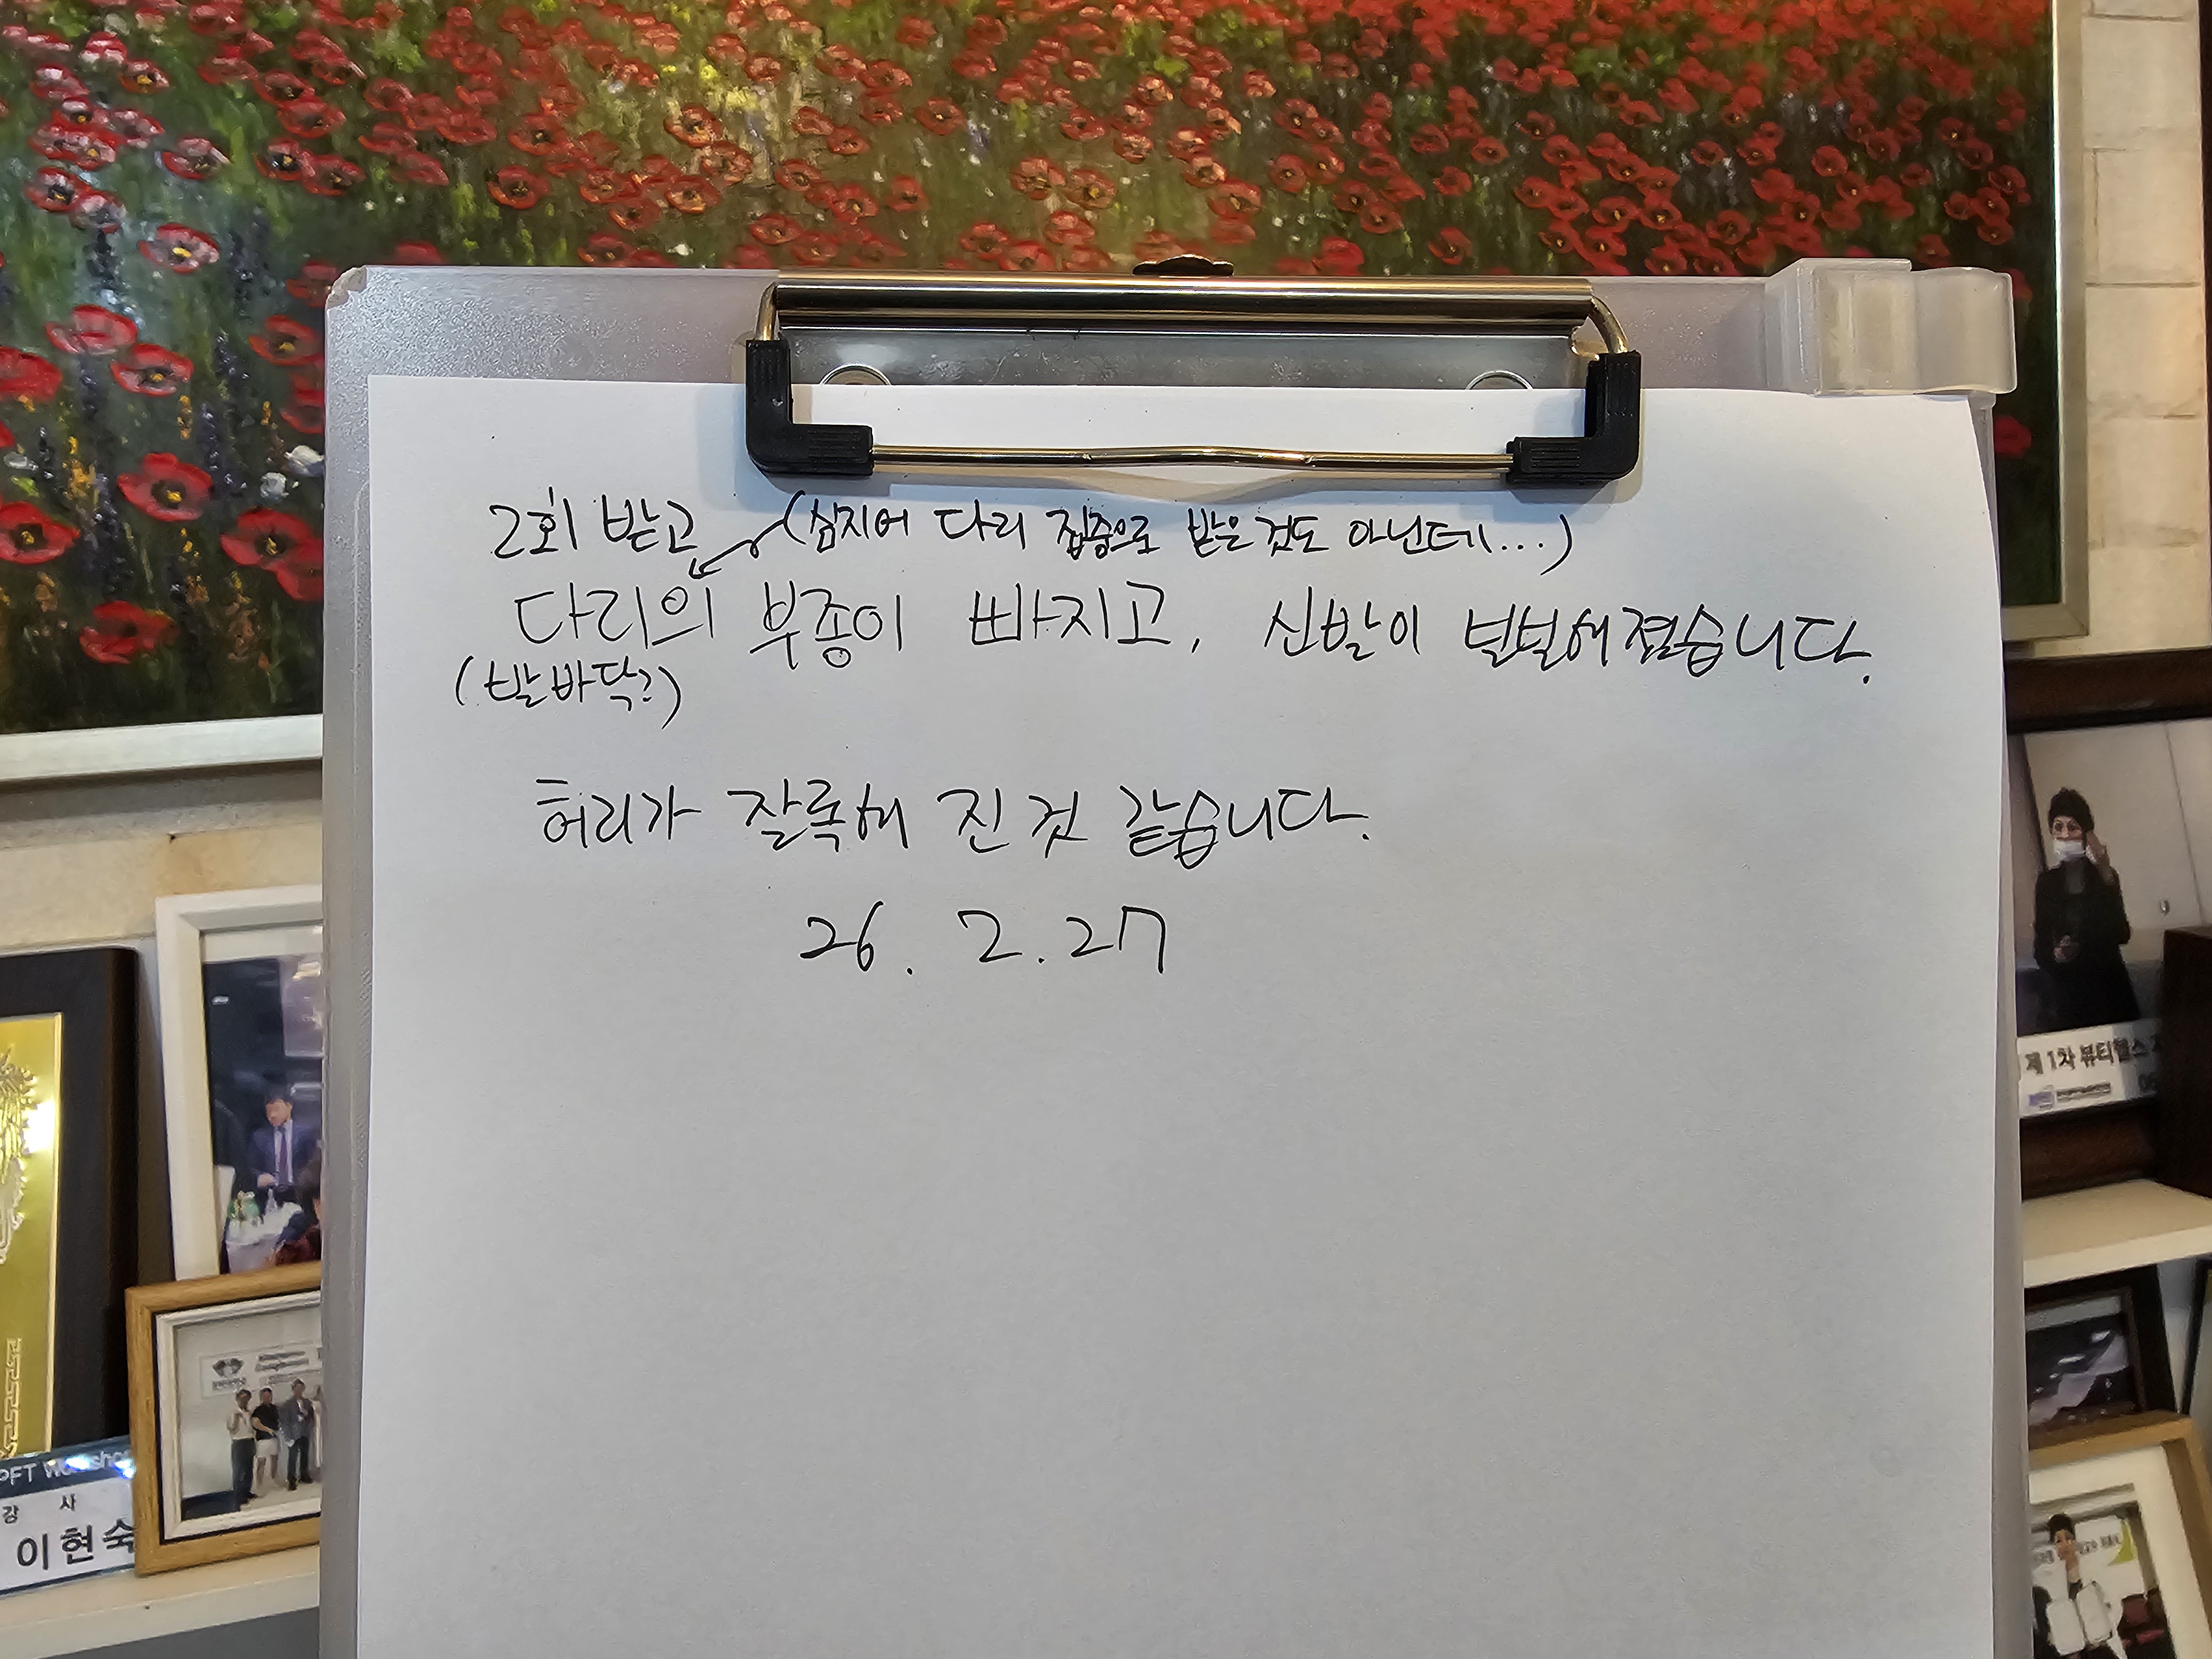 2회 받고 (심지어 다리 집중으로 받은것도 아닌데...)
다리의 부종이 빠지고, 신발이 널널해졌습니다.
(발바닥?)
허리가 잘록해 진 것 같습니다.
26. 2. 27
제 1차 뷰티헬스
PFT Workshop
강 사
이현숙